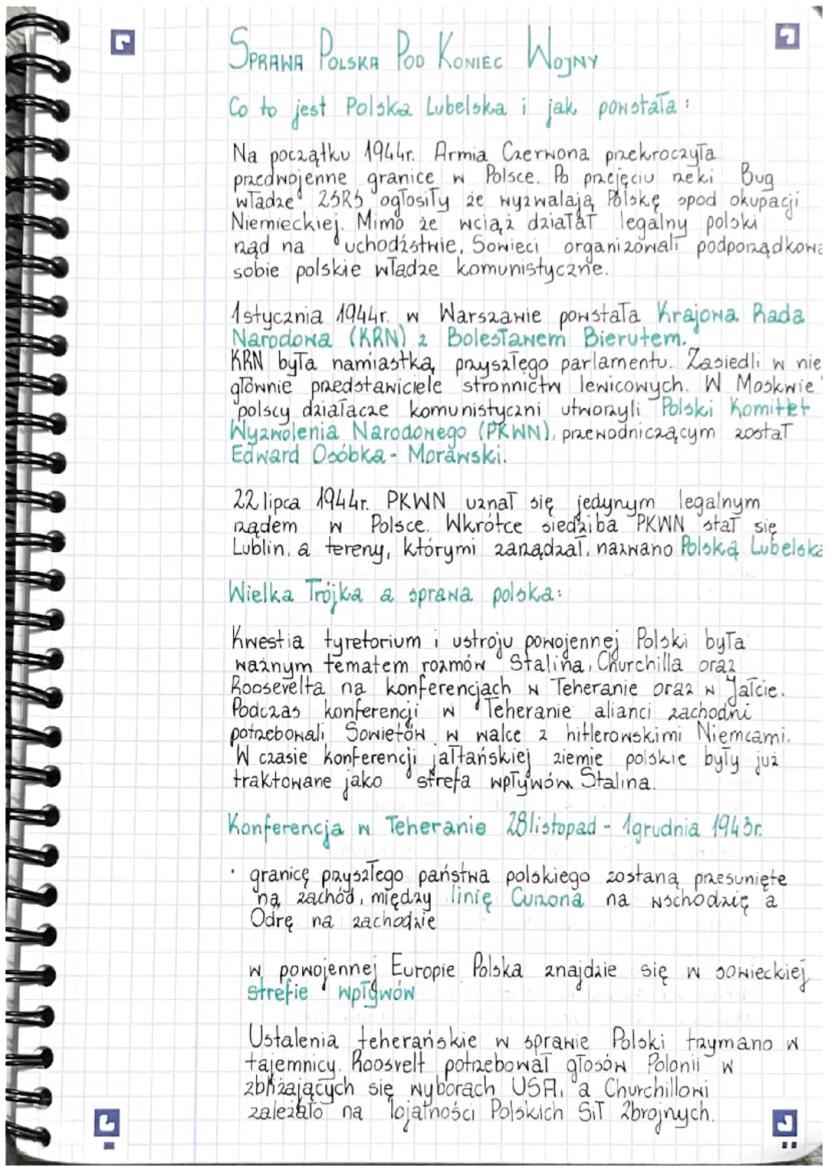 SPRAWA POLSKA POD KONIEC WOJNY
Co to jest Polska Lubelska i jak powstała:
Na początku 1944r. Armia Czerwona przekroczyła
przedwojenne granice w Polsce. Po przejęciu rzeki Bug
władze ZSRS ogłosiły że wyzwalają Polskę spod okupacji
Niemieckiej. Mimo że wciąż działał legalny polski
rząd na uchodźstwie, Sowieci organizowali podporządkowa
sobie polskie władze komunistyczne.
1 stycznia 1944r. w Warszawie powstała Krajowa Rada
Narodowa (KRN) z Bolesławem Bierutem.
KRN była namiastką przyszłego parlamentu. Zasiedli w nie
głównie przedstawiciele stronnictw lewicowych. W Moskwie
polscy działacze komunistyczni utworzyli Polski Komitet
Wyzwolenia Narodowego (PKWN), przewodniczącym został
Edward Osóbka-Morawski.
22 lipca 1944r. PKWN uznał się jedynym legalnym
rządem w Polsce. Wkrótce siedziba PKWN stał się
Lublin, a tereny, którymi zarządzał, nazwano Polską Lubelska
Wielka Trójka a sprawa polska:
Kwestia tyretorium i ustroju powojennej Polski była
ważnym tematem rozmów Stalina, Churchilla oraz
Roosevelta na konferencjach w Teheranie oraz w Jałcie.
Podczas konferencji w Teheranie alianci zachodni
potrzebowali Sowietów w walce z hitlerowskimi Niemcami.
W czasie konferencji jałtańskiej ziemie polskie były już
traktowane jako strefa wpływów Stalina.
Konferencja w Teheranie 28 listopad - 1 grudnia 1943r.
• granicę przyszłego państwa polskiego zostaną przesunięte
na zachód, między linię Curzona na wschodzię a
Odrę na zachodzie
w powojennej Europie Polska znajdzie się w sowieckiej
strefie wpływów
Ustalenia teherańskie w sprawie Polski trzymano w
tajemnicy. Roosvelt potrzebował głosów Polonii w
zbliżających się wyborach USA, a Churchillowi
zależało na lojalności Polskich Sił Zbrojnych.